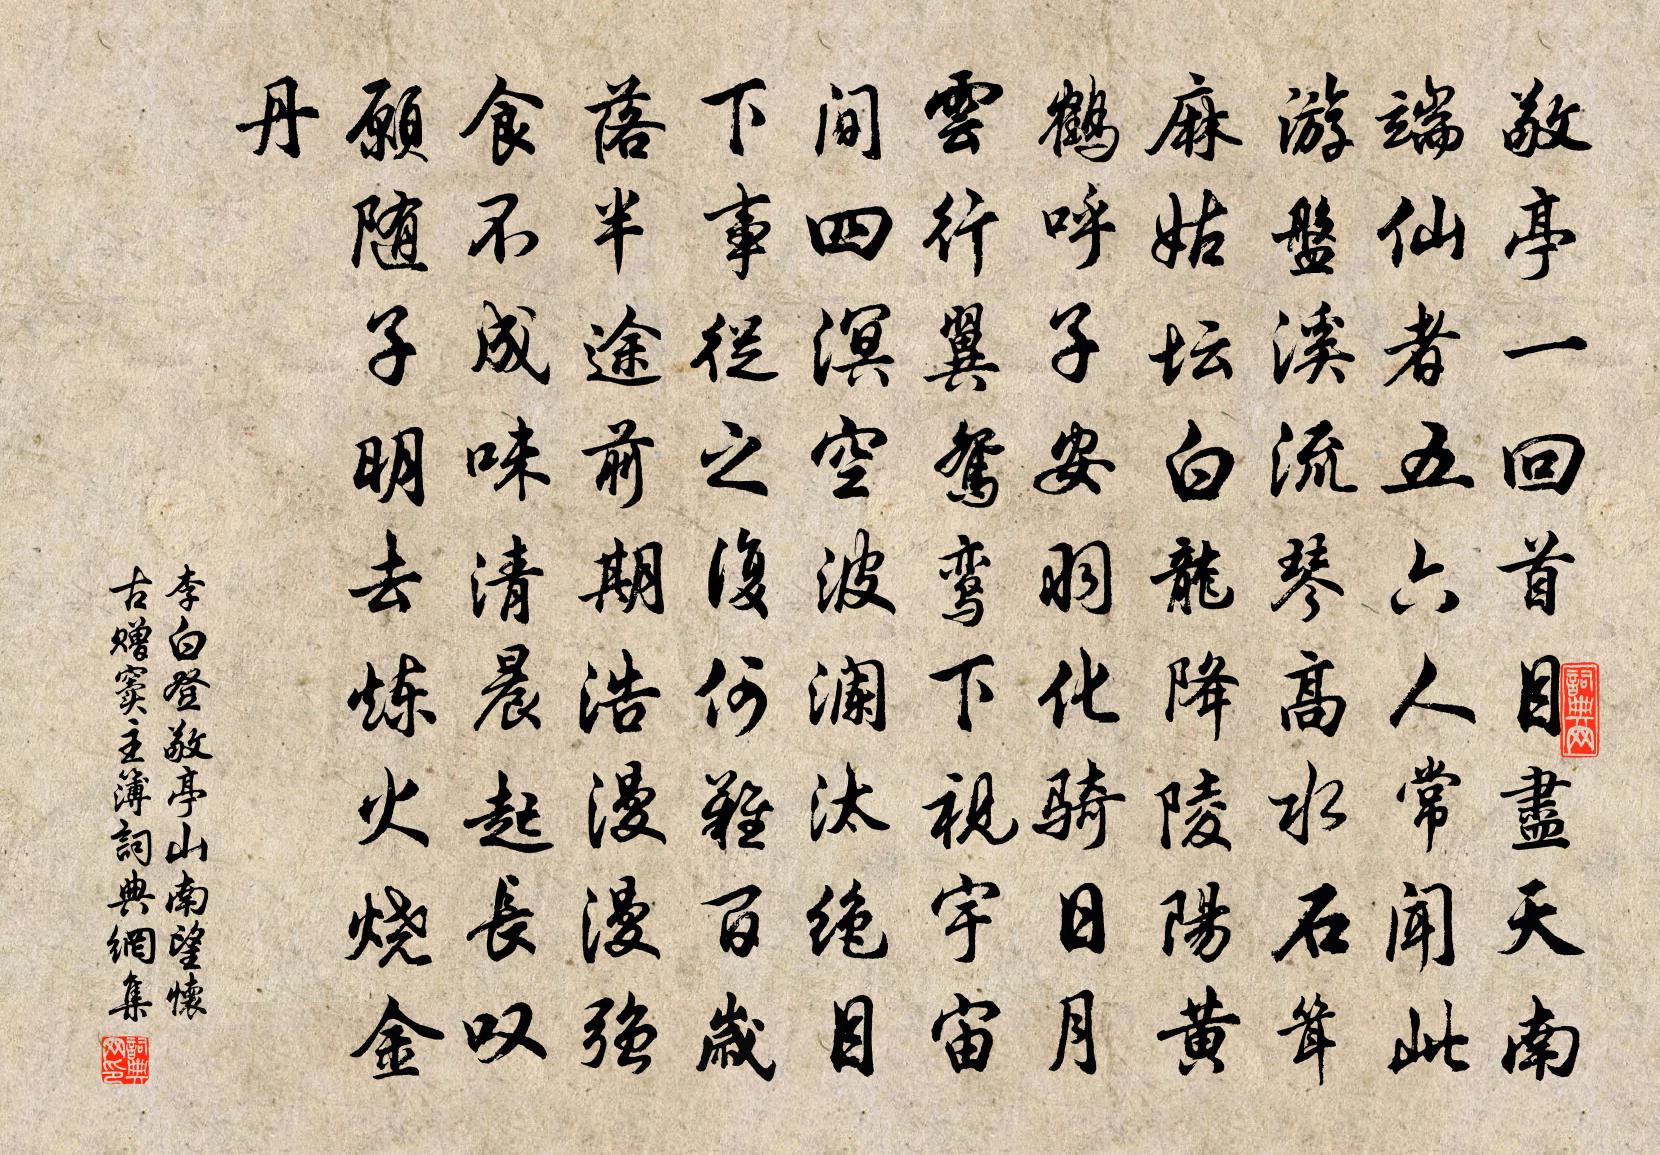 敬亭一回首目盡天南
端仙者五六人常聞此
游盤溪流琴高水石耸
麻姑坛白龍降陵陽黄
鹤呼子安羽化骑日月
雲行翼鸳鸾下視宇宙
间四溟空波澜汰绝目
下事從之復何難百歲
落半途前期浩漫漫强
食不成味清晨起長叹
願随子明去炼火烧金
丹
李白登敬亭山南望懷
古赠窦主簿詞典網集
詞典网
詞典网印